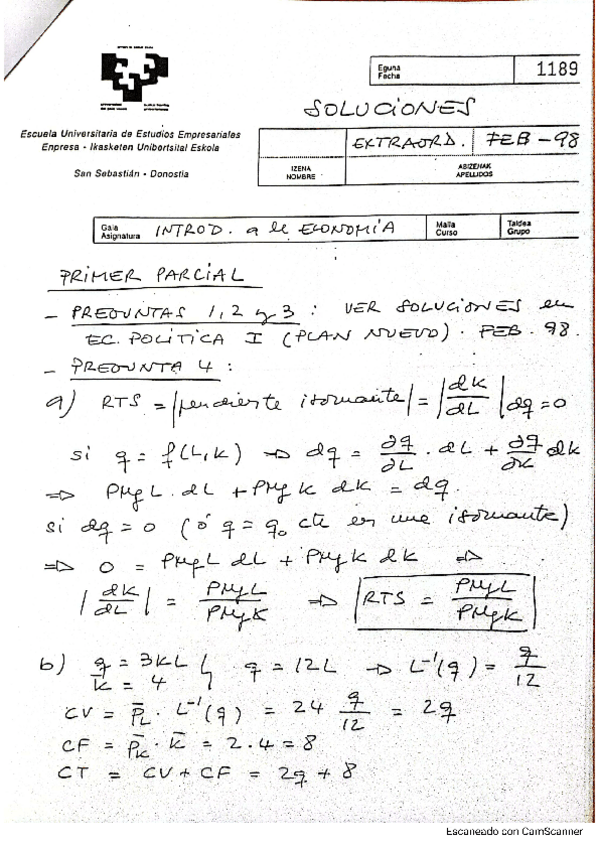 Eguna
Fecha
1189
SOLUCIONES
Escuela Universitaria de Estudios Empresariales
Enpresa - Ikasketen Unibertsital Eskola
San Sebastián - Donostia
EXTRAORD. FEB-98
IZENA
NOMBRE
ABIZENAK
APELLIDOS
Gaia
Asignatura
INTROD. a la ECONOMÍA
Maila
Curso
Taldea
Grupo
PRIMER PARCIAL
- PREGUNTAS 1, 2 y 3 : VER SOLUCIONES en
EC. POLÍTICA I (PLAN NUEVO). FEB. 98.
- PREGUNTA 4 :
a) RTS = |pendiente isocuante| = |dK/dL| dq=0
si q = f(L,K) ⇒ dq = ∂q/∂L . dL + ∂q/∂K dK
⇒ PMgL . dL + PMgK dK = dq.
si dq = 0 (ó q = q₀ cte en una isocuante)
⇒ 0 = PMgL dL + PMgK dK ⇒
|dK/dL| = PMgL/PMgK ⇒ RTS = PMgL/PMgK
b) q = 3KL
K = 4
q = 12L → L⁻¹(q) = q/12
CV = P̄L . L⁻¹(q) = 24 q/12 = 2q
CF = P̄K . K̄ = 2.4 = 8
CT = CV + CF = 2q + 8
Escaneado con CamScanner